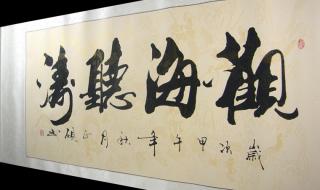 觀海聽濤
歲次甲午年秋月正碩書